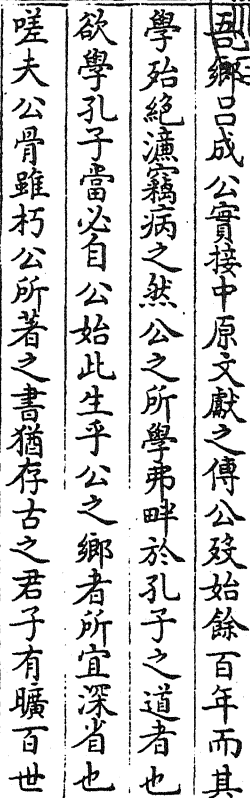 吾鄉吕成公實接中原文獻之傳公歿始餘百年而其
學殆絶濂竊病之然公之所學弗畔於孔子之道者也
欲學孔子當必自公始此生乎公之鄉者所宜深省也
嗟夫公骨雖朽公所著之書猶存古之君子有曠百世